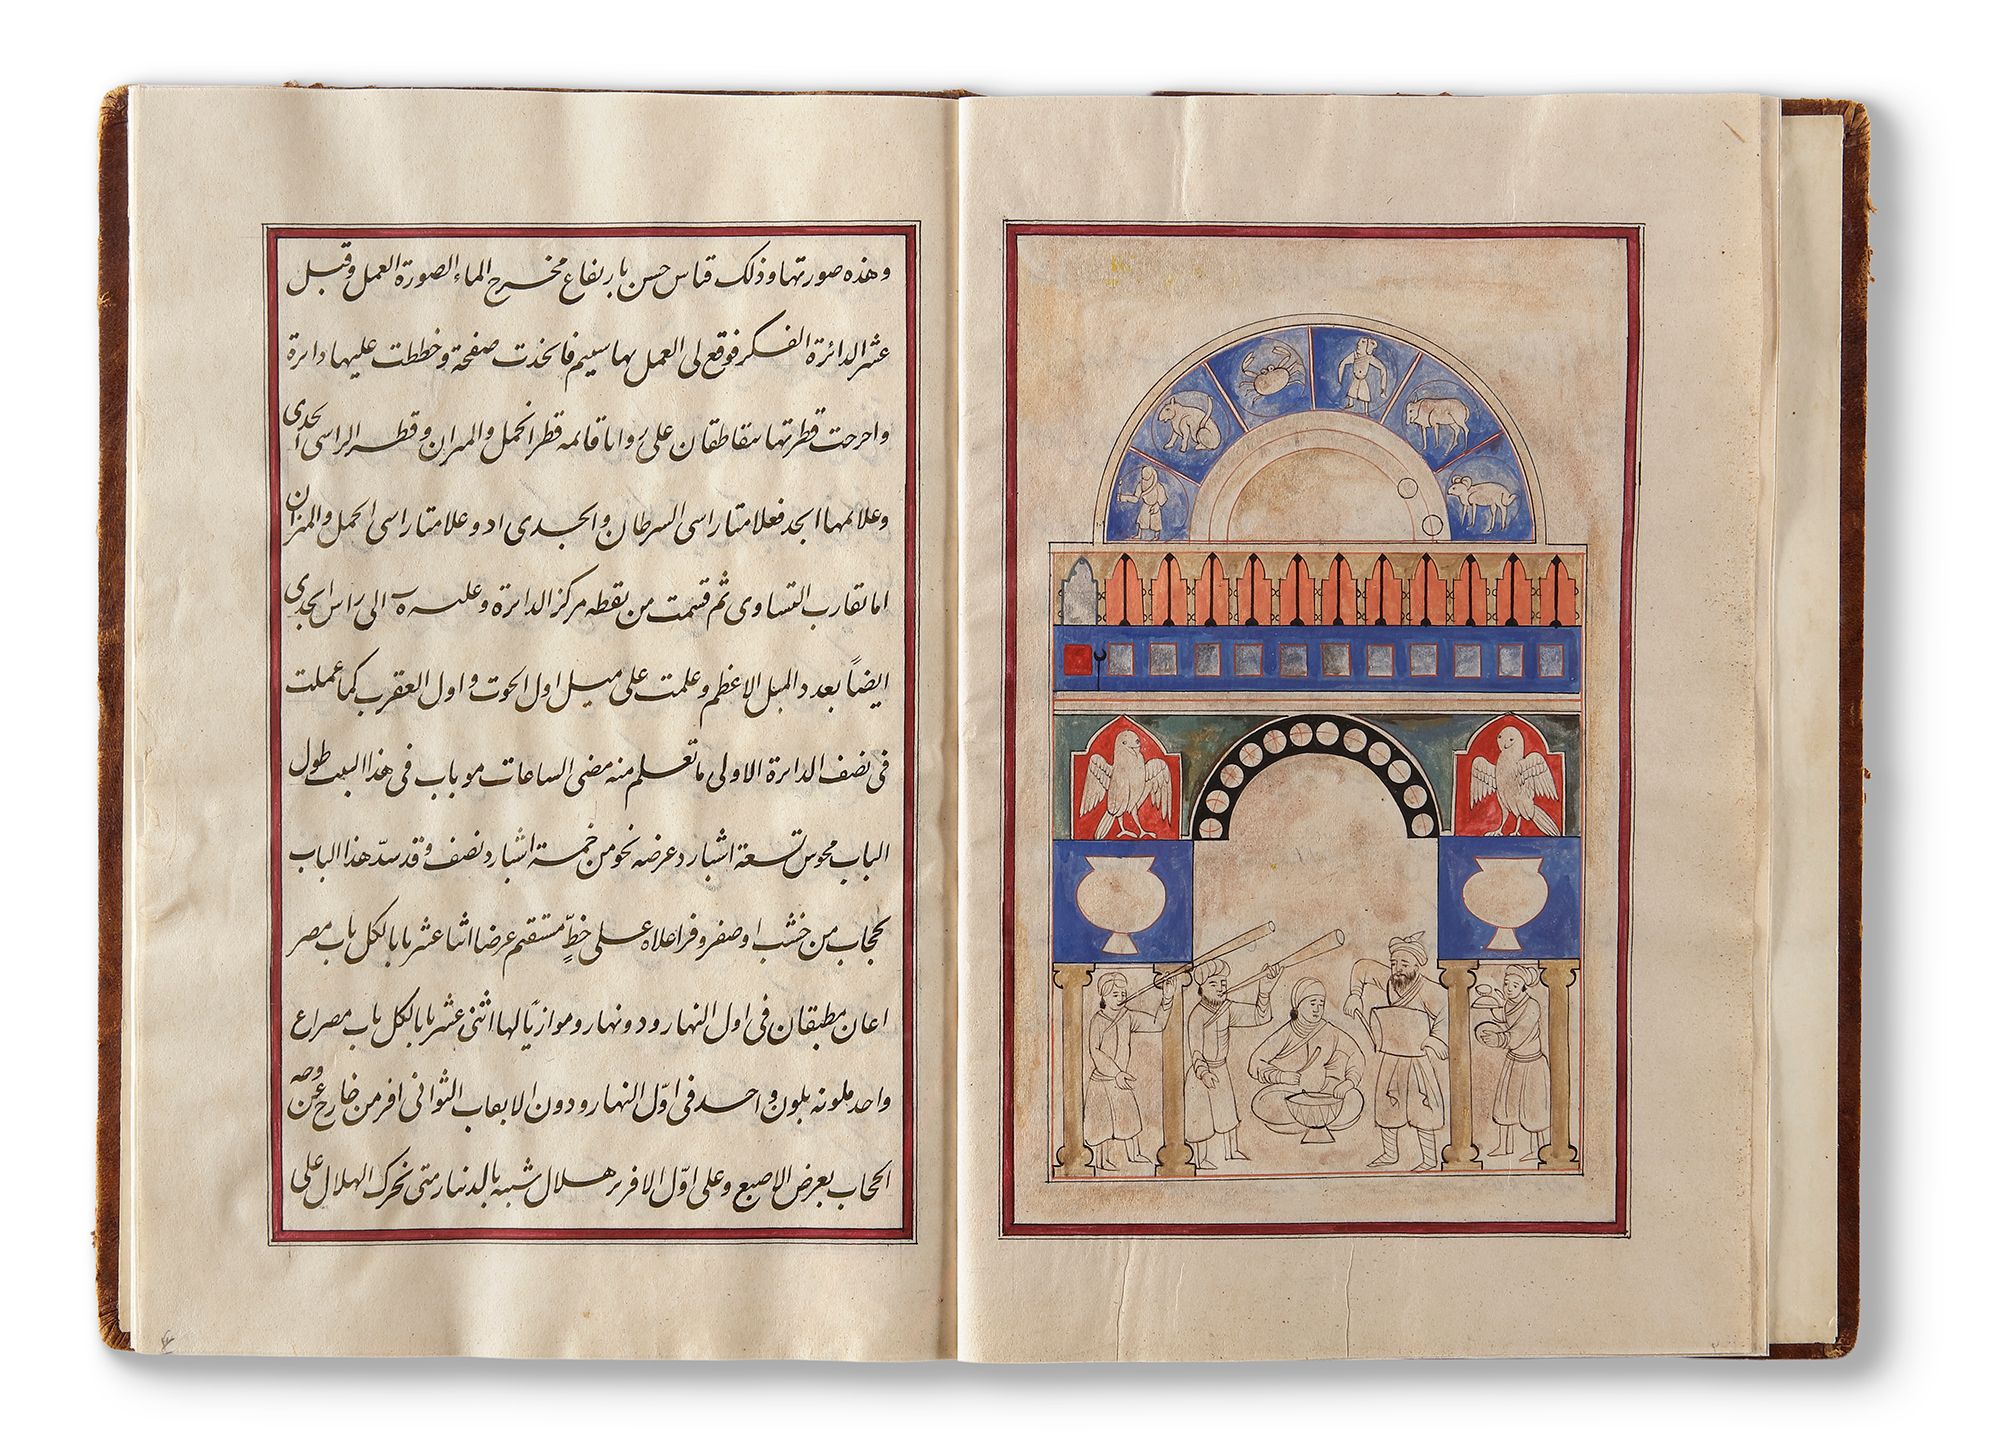 وهذه صورتها وذلك قناس حسن بارتفاع مخرج الماء الصورة العمل وقبل
عشر الدائرة الفكر فوقع لى العمل بها سيم فاتخذت صفحة وخططت عليها دائرة
واخرجت قطرتها يتقاطقان على زوايا قائمه قطر الحمل والميزان وقطر الراسى الجدى
وعلامها ابجد فعلامتا راسى السرطان والجدى اد وعلامتا راسى الحمل والميزان
اما تقارب التساوى ثم قسمت من نقطه مركز الدائرة وعليه ه الى راس الجدى
ايضاً بعدد الميل الاعظم وعلمت على ميل اول الحوت واول العقرب كما عملت
فى نصف الدائرة الاولى ما تعلم منه مضى الساعات مو باب فى هذا البيت طول
الباب محوس تسعة اشبار وعرضه نحو من خمسة اشبار ونصف وقد سدّ هذا الباب
بحجاب من خشب او صفر وفر اعلاه على خطٍّ مستقم عرضا اثنا عشر بابا لكل باب مصر
اعان مطبقان فى اول النهار ودونهار وموازياً لها اثنى عشر بابا لكل باب مصراع
واحد ملونه بلون واحد فى اوّل النهار ودون الابعاب الثوانى افرمن خارج عن وجه
الحجاب بعرض الاصبع وعلى اوّل الافرير هلال شبيه بالدنيار متى تحرك الهلال على